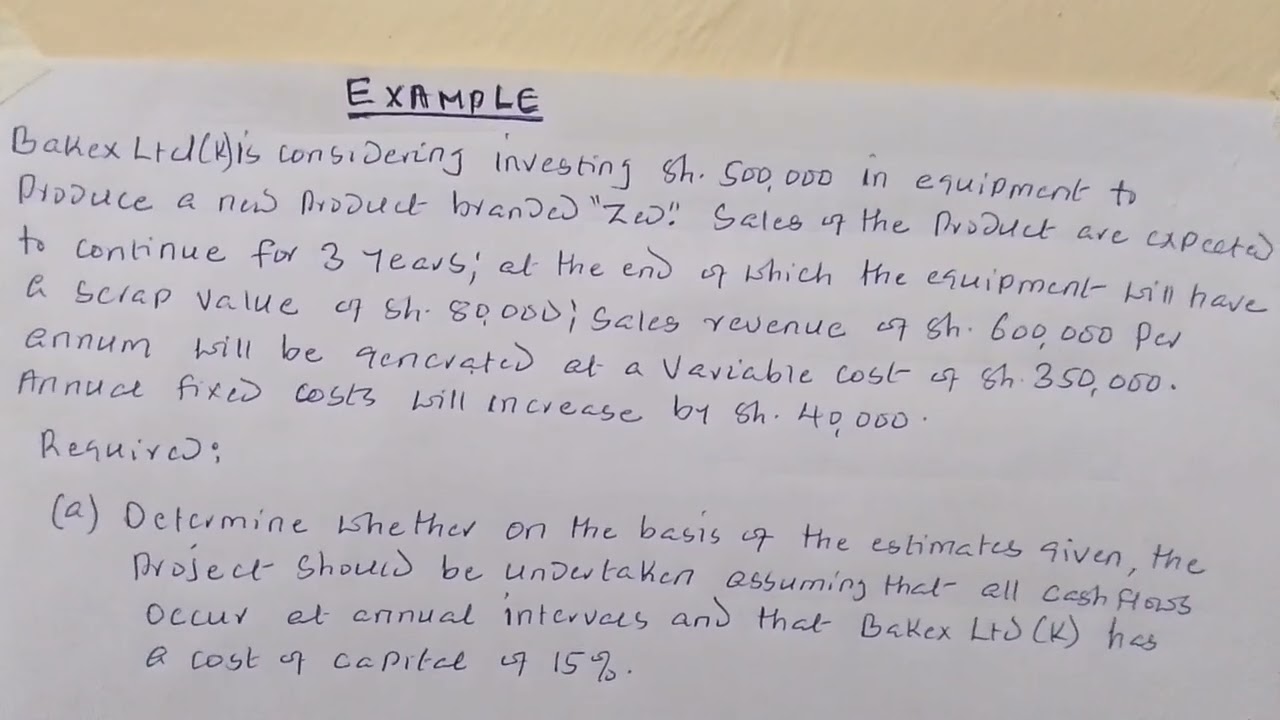 EXAMPLE
Bakex Ltd(K)is considering investing Sh. 500,000 in equipment to
Produce a new Product branded "Zed". Sales of the Product are expected
to continue for 3 years; at the end of which the equipment will have
a scrap value of Sh. 80,000; Sales revenue of Sh. 600,000 Per
annum will be generated at a variable cost of Sh. 350,000.
Annual fixed costs will increase by Sh. 40,000.
Required;
(a) Determine whether on the basis of the estimates given, the
Project should be undertaken assuming that all cashflows
occur at annual intervals and that Bakex Ltd (K) has
a cost of capital of 15%.